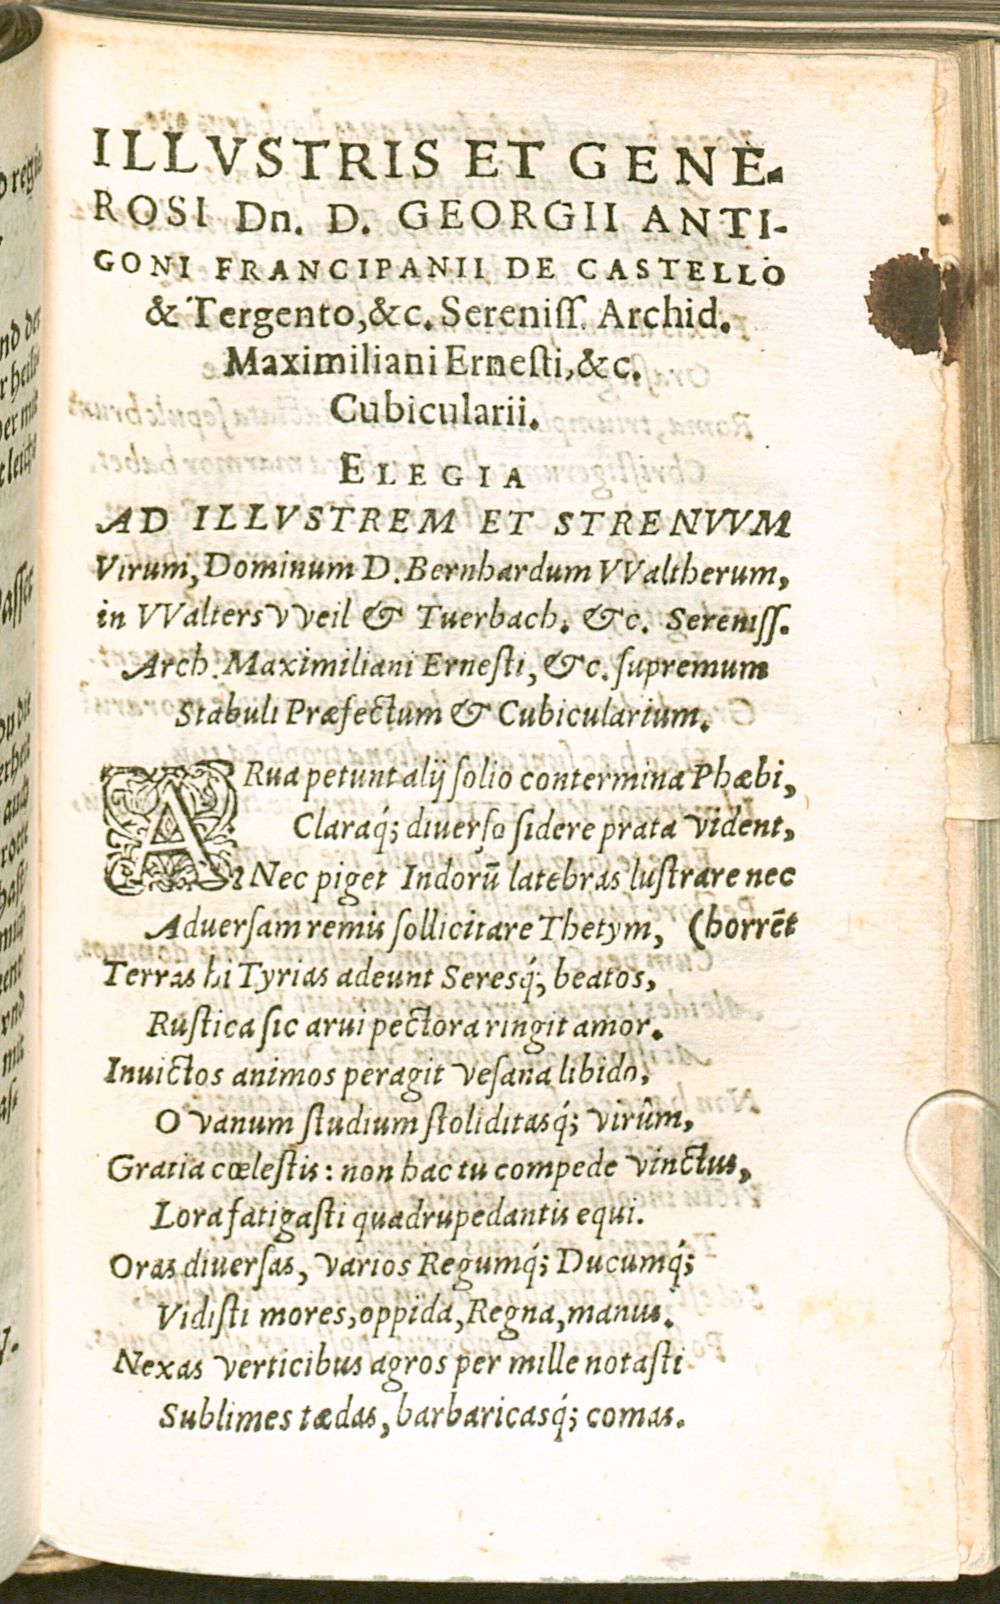 ILLVSTRIS ET GENE-
ROSI Dn. D. GEORGII ANTI-
GONI FRANCIPANII DE CASTELLO
& Tergento, &c. Sereniſſ. Archid.
Maximiliani Erneſti, &c.
Cubicularii.
ELEGIA
AD ILLVSTREM ET STRENVVM
Virum, Dominum D. Bernhardum VValtherum,
in VValtersvveil & Tuerbach. &c. Sereniſſ.
Arch. Maximiliani Erneſti, &c. ſupremum
Stabuli Præfectum & Cubicularium.
ARua petunt alij ſolio contermina Phæbi,
Claraq́; diuerſo ſidere prata vident,
Nec piget Indorū latebras luſtrare nec
Aduerſam remis ſollicitare Thetym, (horrēt
Terras hi Tyrias adeunt Seresq́; beatos,
Ruſtica ſic arui pectora ringit amor.
Inuictos animos peragit veſana libido,
O vanum ſtudium ſtoliditasq́; virûm,
Gratia cœleſtis: non hac tu compede vinctus,
Lora fatigaſti quadrupedantis equi.
Oras diuerſas, varios Regumq́; Ducumq́;
Vidiſti mores, oppida, Regna, manus.
Nexas verticibus agros per mille notaſti
Sublimes tædas, barbaricasq́; comas.